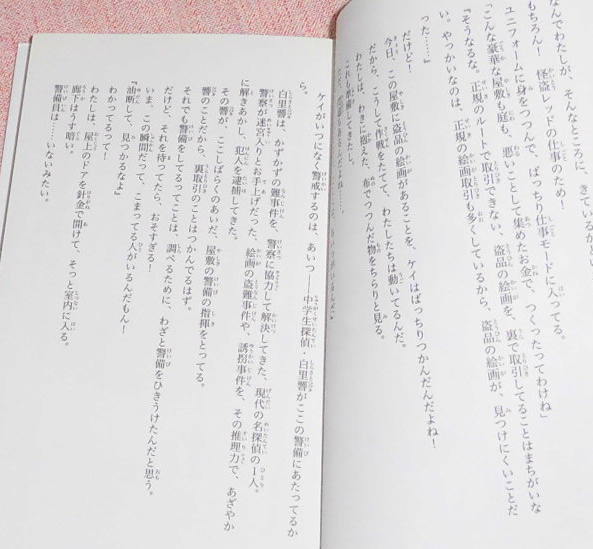 なんでわたしが、そんなところに、きているか
もちろん! 怪盗レッドの仕事のため!
ユニフォームに身をつつんで、ばっちり仕事モードに入ってる。
「こんな豪華な屋敷も庭も、悪いことして集めたお金で、つくったってわけね」
『そうなるな。正規のルートで取引できない、盗品の絵画を、裏で取引してることはまちがいな
い。やっかいなのは、正規の絵画取引も多くしているから、盗品の絵画が、見つけにくいことだ
った……』
だけど!
今日、この屋敷に盗品の絵画があることを、ケイはばっちりつかんだんだよね!
だから、こうして作戦をたてて、わたしたちは動いてるんだ。
わたしは、わきに抱えた、布でつつんだ物をちらりと見る。
これも準備してきたし。
ケイがいつになく警戒するのは、あいつ――中学生探偵・白里響がここの警備にあたってるか
ら。
白里響は、かずかずの難事件を、警察に協力して解決してきた、現代の名探偵の1人。
警察が迷宮入りとお手上げだった、絵画の盗難事件や、誘拐事件を、その推理力で、あざやか
に解きあかし、犯人を逮捕してきた。
その響が、ここしばらくのあいだ、屋敷の警備の指揮をとってる。
響のことだから、裏取引のことはつかんでるはず。
それでも警備をしてるってことは、調べるために、わざと警備をひきうけたんだと思う。
だけど、それを待ってたら、おそすぎる!
いま、この瞬間だって、こまってる人がいるんだもん!
『油断して、見つかるなよ』
わかってるって!
わたしは、屋上のドアを針金で開けて、そっと室内に入る。
廊下はうす暗い。
警備員は……いないみたい。